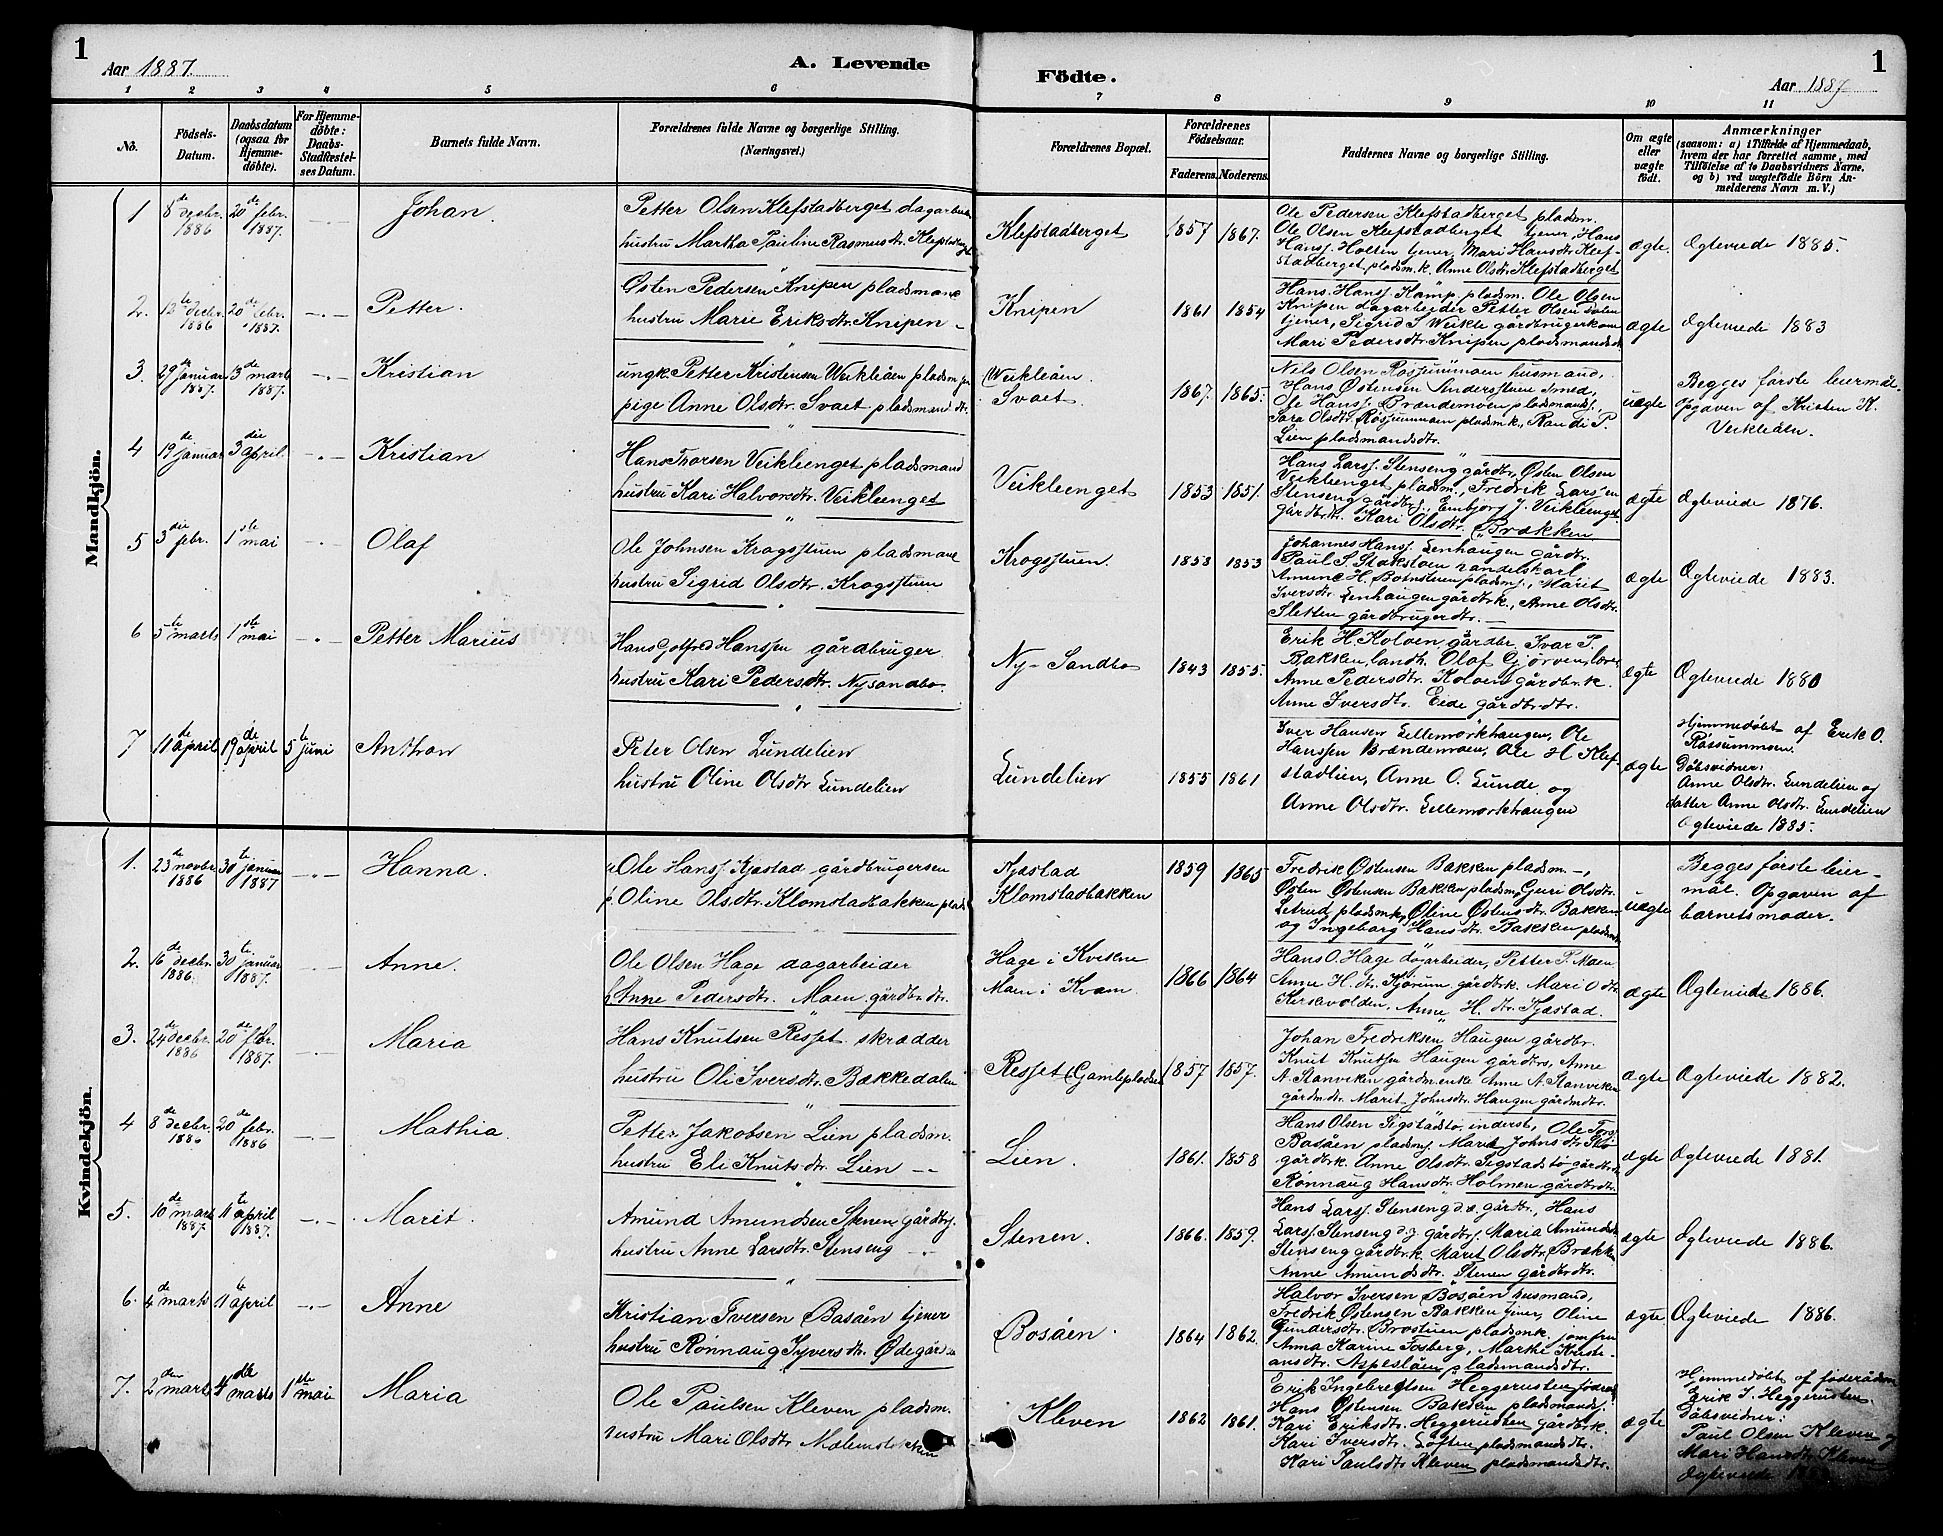 1
Aar 1887.
A. Levende
Födte.
Aar 1887
1
1 2 3 4 5 6 7 8 9 10 11
No.
Födsels-Datum.
Daabsdatum (ogsaa for Hjemmedöbte).
For Hjemmedöbte: Daabs-Stadfæstelses Datum.
Barnets fulde Navn.
Forældrenes fulde Navne og borgerlige Stilling. (Næringsvei.)
Forældrenes Bopæl.
Forældrenes Födselsaar.
Faderens. Moderens.
Faddernes Navne og borgerlige Stilling.
Om ægte eller uægte födt.
Anmærkninger
(saasom: a) i Tilfælde af Hjemmedaab,
hvem der har forrettet samme, med
Tilföielse af to Daabsvidners Navne,
og b) ved uægtefödte Börn Anmelderens Navn m. V.)
Mandkjön.
1 8de decbr. 1886 20de febr. 1887. -.- Johan.
Petter Olsen Klefstadberget dagarbeider
hustru Martha Pauline Rasmusdtr. Klefstadberget
Klefstadberget 1857 1867.
Ole Pedersen Klefstadberget pladsm.
Ole Olsen Klefstadberget tjener, Hans
Hansj. Holten tjener, Mari Hansdtr. Klefstadberget pladsm.k. Anne Olsdtr. Klefstadberget
ægte. Ogteviede 1885.
2. 13te decbr. 1886 20de febr. 1887. -.- Petter.
Østen Pedersen Knipen pladsmand
hustru Marie Eriksdtr. Knipen -
Knipen 1861 1854
Hans Hansj. Kamp pladsm. Ole Olsen
Knipen dagarbeider Petter Olsen Dalen
tjener, Sigrid S. Weikle gårdbrugerkone
Mari Pedersdtr. Knipen pladsmandsdtr.
ægte Ogteviede 1883
3. 29de januar 1887. 13de marts 1887. -.- Kristian
ungk. Petter Kristensen Weikleåen pladsm.
pige Anne Olsdtr. Svaet pladsmandsdtr.
Weikleåen. Svaet. 1867. 1865.
Nils Olsen Røsjumoen husmand,
Hans Østensen Anderstuen smed,
Ole Hansj. Brændemoen pladsmandsj.
Sara Olsdtr. Røsjumoen pladsm.k., Randi P.
Lien pladsmandsdtr.
uægte Begges første leiermål.
Opgaven af Kristen K.
Veikleåen.
4 19de januar 3die april. Kristian
Hans Thorsen Veikleenget pladsmand
hustru Kari Halvorsdtr. Veikleenget
Veikleenget 1853 1851.
Hans Larsj. Stenseng gårdbr., Østen Olsen
Veikleenget pladsm., Fredrik Larsen
Stenseng gårdbrj., Embjørg J. Veikleenget
gårdbr.dtr. Kari Olsdtr. Brækken
ægte Ogteviede 1876.
5 3die febr. 1ste mai -.- Olaf
Ole Johnsen Krogsstuen pladsmand
hustru Sigrid Olsdtr. Krogsstuen
Krogsstuen. 1858 1853
Johannes Hansj. Lenhaugen gårdbr.
Paul S. Stokstøen handelskarl
Amund H. Botnstuen pladsmj., Marit
Iversdtr. Lenhaugen gårdbr.k., Anne Olsdtr.
Sletten gårdbrugerdtr. -
ægte Ogteviede 1883.
6 5te marts 1ste mai -.- Petter Marius
Hans Gotfred Hanssen gårdbruger
hustru Kari Pedersdtr. Nysandbo.
Ny-Sandbo 1843 1855.
Erik H. Kolven gårdbr. Ivar T.
Bakken, landh. Olaf Gjørven,
Anne Pedersdtr. Kolven gårdbr.k.
Anne Iversdtr. Eide gårdbr.dtr.
ægte Ogteviede 1880
7 11de april 19de april 5te juni Anthon
Peter Olsen Lundelien
hustru Oline Olsdtr Lundelien
Lundelien 1855 1861
Iver Hansen Lillemorkhaugen, Ole
Hanssen Brændemoen, Ole H Klefstadlien, Anne O. Lunde og
Anne Olsdtr. Lillemorkhaugen
ægte Hjemmedøbt af Erik O.
Røssummoen.
Dåbsvidner:
Anne Olsdtr. Lundelien og
datter Anne Olsdtr. Lundelien
Ogteviede 1885.
Kvindekjön.
1. 23de novbr. 1886 30te januar 1887 -.- Hanna.
Ole Hansj. Kjæstad gårdbrugersøn
p. Oline Olsdtr. Klomstadbakken
Kjæstad Klomstadbakken 1859 1865
Fredrik Østensen Bakken pladsm. -,
Østen Østensen Bakken pladsm, Guri Olsdtr.
Letrud pladsm.k. Oline Østensdtr. Bakken
og Ingeborg Hansdtr. Bakken
uægte Begges første leiermål. Opgaven af
barnets moder.
2. 16de decbr. 1886. 30te januar 1887. Anne.
Ole Olsen Hage dagarbeider
Anne Pedersdtr. Moen gårdbr.dtr.
Hage i Kvikne
Moen i Kvam 1866 1864
Hans O. Hage dagarbeider, Petter P. Moen
Anne H. dtr. Kjørum gårdbr.k. Mari O dtr.
Anne H. dtr. Kjæstad.
ægte Ogteviede 1886.
3. 24de decbr. 1886 20de febr. 1887. -.- Maria
Hans Knutsen Resset skrædder
hustru Oli Iversdtr. Bækkedalen
Resset (Gamlepladsen 1857 1857.
Johan Fredriksen Haugen gårdbr.
Knut Knutsen Haugen gårdbrs, Anne
A. Stanviken gårdm.enke Anne A. Stanviken
gårdm.dtr. Marit Johnsdtr. Haugen gårdm.dtr.
ægte Ogteviede 1882.
4 8de decbr. 1886 20de febr. 1886 -.- Mathia.
Petter Jakobsen Lien pladsm.
hustru Eli Knutsdtr. Lien -.-
Lien. 1861. 1858
Hans Olsen Sigstadstø inderst, Ole
Bosåen pladsmj Mari Johnsdtr.
gårdbr.k. Anne Olsdtr. Sigstadstø gårdbr.dtr.
Rønnaug Hansdtr. Holmen gårdbr.dtr.
ægte Ogteviede 1881.
5. 10de marts 1887. 11te april 1887. -.- Marit.
Amund Amundsen Stenen gårdbrj.
hustru Anne Larsdtr. Stenseng -.-
Stenen. 1866. 1859.
Hans Larsj. Stenseng d.æ. gårdbr., Hans
Larsj. Stenseng d.y. gårdbrj. Maria Amundsdtr.
Stenseng gårdbr.k. Marit Olsdtr. Brækken
Anne Amundsdtr. Stenen gårdbr.dtr.
ægte Ogteviede 1886.
6. 4de marts 11te april -.- Anne
Kristian Iversen Bosåen tjener
hustru Rønnaug Syversdtr. Ødegården
Bosåen. 1864 1862.
Halvor Iversen Bosåen husmand,
Fredrik Østensen Bakken tjener, Oline
Gundersdtr. Brostuen pladsm.k. jomfru
Anna Karine Fosberg, Marthe Kristiansdtr. Aspeslåen pladsmandsdtr.
ægte. Ogteviede 1886.
7. 2den marts 4de marts 1ste mai Maria
Ole Paulsen Kleven pladsm.
hustru Mari Olsdtr
Kleven 1862 1861.
Erik Ingebretsen Heggerusten føderåd
Hans Østensen Bakken pladsmandsj.
Kari Eriksdtr. Heggerusten gårdbr.k.
Kari Iversdtr. Loften pladsmandsdtr.
Kari Paulsdtr. Kleven pladsmandsdtr.
ægte Hjemmedøbt af føderådsm.
Erik I. Heggerusten.
Dåbsvidner:
Paul Olsen Kleven og
Mari Hansdtr. Kleven
Ogteviede